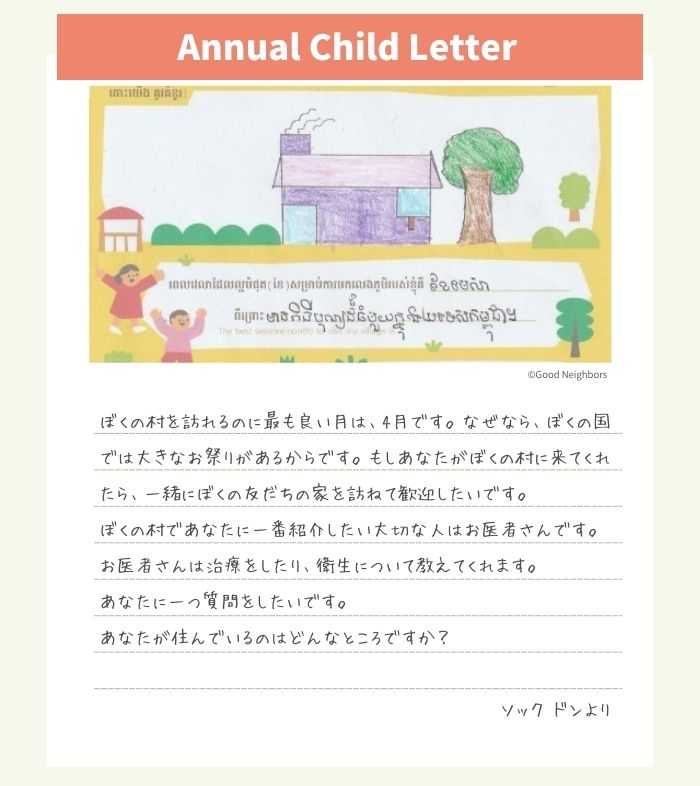 Annual Child Letter
តោះយើង គូរគំនូរ!
ពេលវេលាដែលល្អបំផុត(ខែ)សម្រាប់ការមកលេងភូមិរបស់ខ្ញុំគឺ ខែមេសា
ពីព្រោះ មានពិធីបុណ្យដ៏ធំមួយក្នុង
The best season(month) to visit my village is
©Good Neighbors
ぼくの村を訪れるのに最も良い月は、4月です。なぜなら、ぼくの国
では大きなお祭りがあるからです。もしあなたがぼくの村に来てくれ
たら、一緒にぼくの友だちの家を訪ねて歓迎したいです。
ぼくの村であなたに一番紹介したい大切な人はお医者さんです。
お医者さんは治療をしたり、衛生について教えてくれます。
あなたに一つ質問をしたいです。
あなたが住んでいるのはどんなところですか？
ソック ドンより